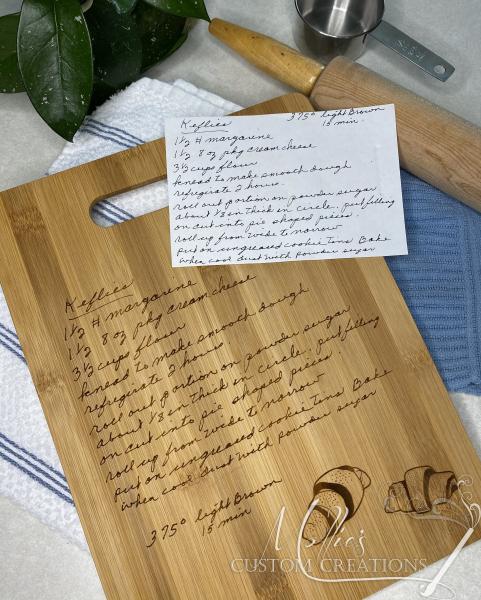 Keflies
375° light Brown
15 min.
1 1/2 # margarene
1 1/2 8 oz pkg cream cheese
3 1/2 cups flour
knead to make smooth dough
refregirate 2 hours.
roll out portion on powder sugar
about 1/8 in thick in circle. put filling
on cut into pie shaped pieces.
roll up from wide to narrow
put on ungreased cookie tens Bake
when cool dust with powder sugar
Keflies
1 1/2 # margarene
1 1/2 8 oz pkg cream cheese
3 1/2 cups flour
knead to make smooth dough
refregirate 2 hours.
roll out portion on powder sugar
about 1/8 in thick in circle. put filling
on cut into pie shaped pieces.
roll up from wide to narrow
put on ungreased cookie tens Bake
when cool dust with powder sugar
375° light Brown
15 min
Mollie's
CUSTOM CREATIONS